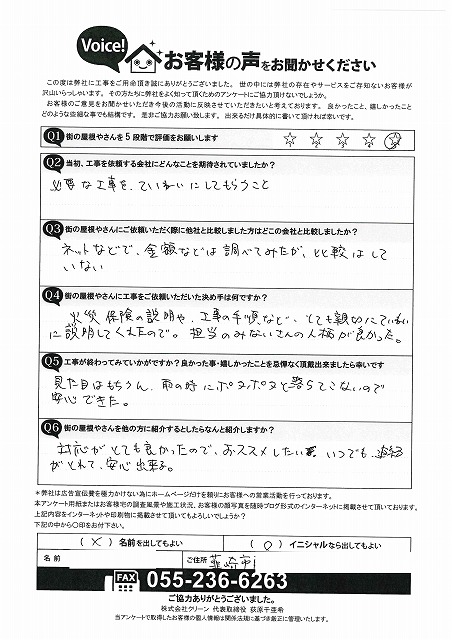 Voice!
お客様の声をお聞かせください
この度は弊社に工事をご用命頂き誠にありがとうございました。世の中には弊社の存在やサービスをご存知ないお客様が
沢山いらっしゃいます。その方たちに弊社をよく知って頂くためのアンケートにご協力頂けないでしょうか。
お客様のご意見をお聞かせいただき今後の活動に反映させていただきたいと考えております。良かったこと、嬉しかったこと
どのような些細な事でも結構です。是非ご協力お願い致します。出来るだけ具体的に書いて頂ければ幸いです。
Q1 街の屋根やさんを5段階で評価をお願いします ☆ ☆ ☆ ☆ ☆
Q2 当初、工事を依頼する会社にどんなことを期待されていましたか?
必要な工事を、ていねいにしてもらうこと
Q3 街の屋根やさんにご依頼いただく際に他社と比較しました方はどこの会社と比較しましたか?
ネットなどで、金額などは調べてみたが、比較はして
いない
Q4 街の屋根やさんに工事をご依頼いただいた決め手は何ですか?
火災保険の説明や、工事の手順など、とても親切にていねい
に説明してくれたので。担当のみなさんの人柄が良かった。
Q5 工事が終わってみていかがですか?良かった事・嬉しかったことを忌憚なく頂戴出来ましたら幸いです
見た目はもちろん、雨の時にポタポタと落ちてこないので
安心できた。
Q6 街の屋根やさんを他の方に紹介するとしたらなんと紹介しますか?
対応がとても良かったので、おススメしたい いつでも、連絡
がとれて、安心出来る。
*弊社は広告宣伝費を極力かけない為にホームページだけを頼りにお客様への営業活動を行っております。
本アンケート用紙またはお客様宅の調査風景や施工状況、お客様の顔写真を随時ブログ形式のインターネットに掲載させて頂いております。
上記内容をインターネットや印刷物に掲載させて頂いてもよろしいでしょうか?
下記の中から〇印をお付下さい。
(×)名前を出してもよい (○)イニシャルなら出してもよい
名前 ご住所 韮崎市
FAX 055-236-6263
ご協力ありがとうございました。
株式会社クリーン 代表取締役 荻原千亜希
当アンケートで取得したお客様の個人情報は関係法規に基づき厳正に管理いたします。